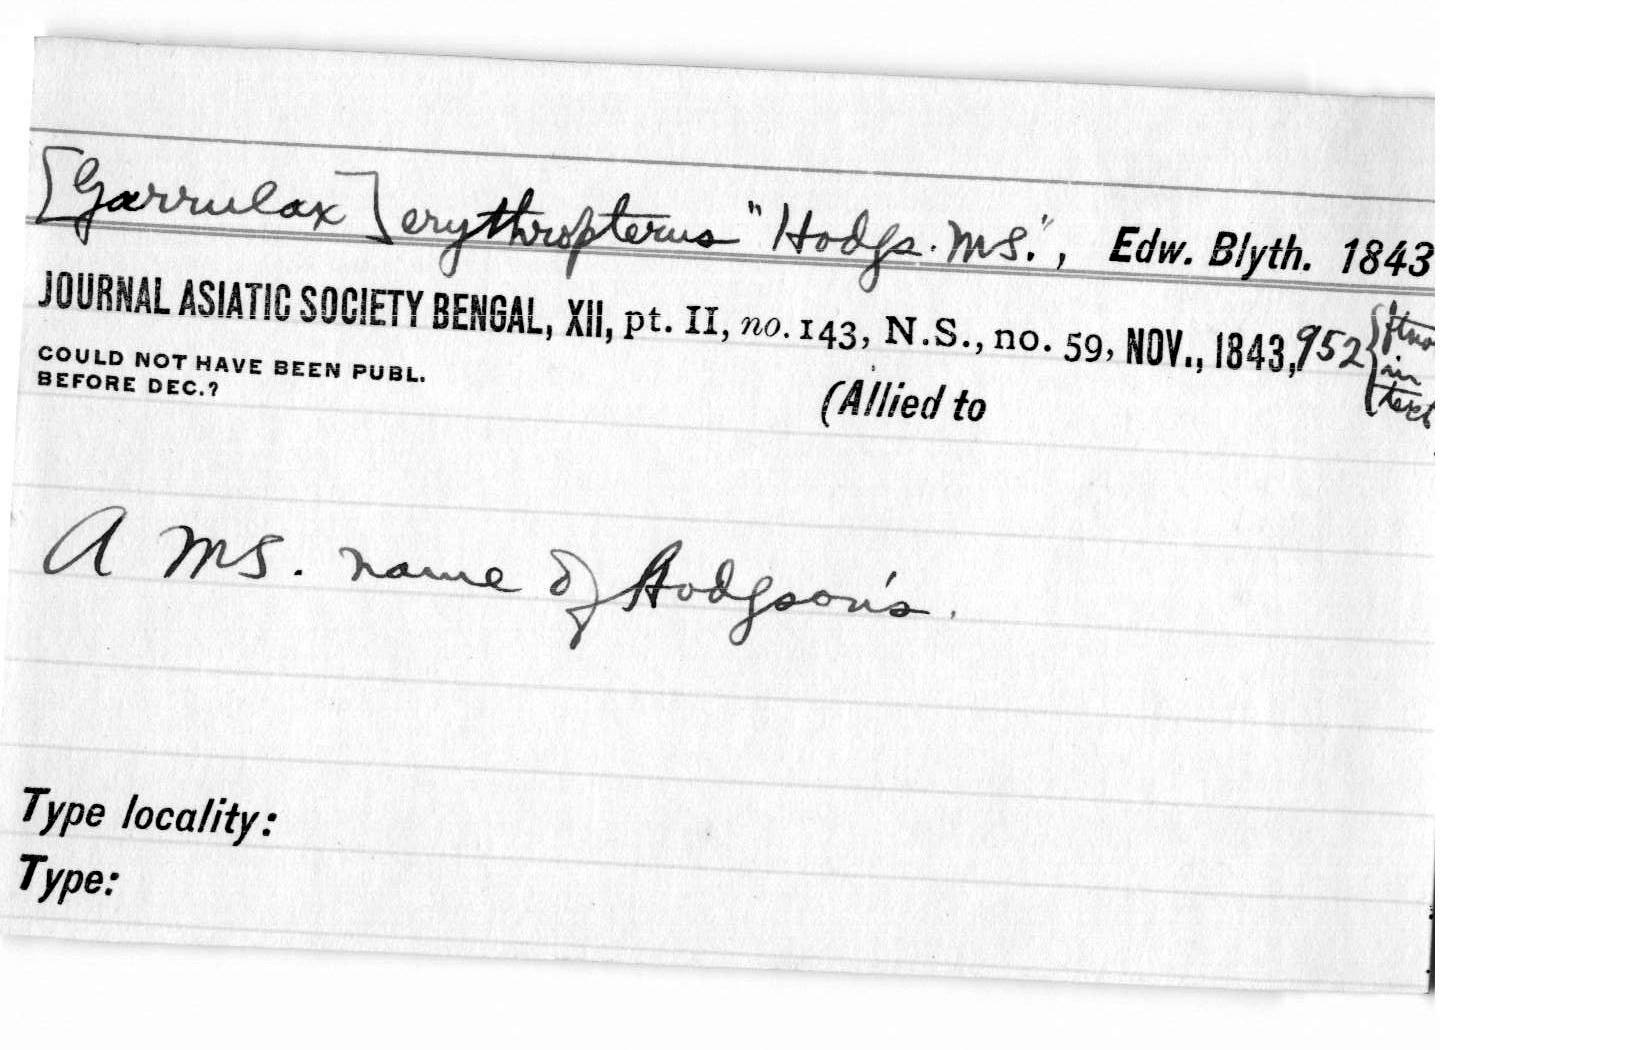 [Garrulax] erythropterus "Hodgs. MS.", Edw. Blyth. 1843
JOURNAL ASIATIC SOCIETY BENGAL, XII, pt. II, no. 143, N.S., no. 59, NOV., 1843, 952 { ftno in text
COULD NOT HAVE BEEN PUBL.
BEFORE DEC.?
(Allied to
A MS. name of Hodgson's.
Type locality:
Type: